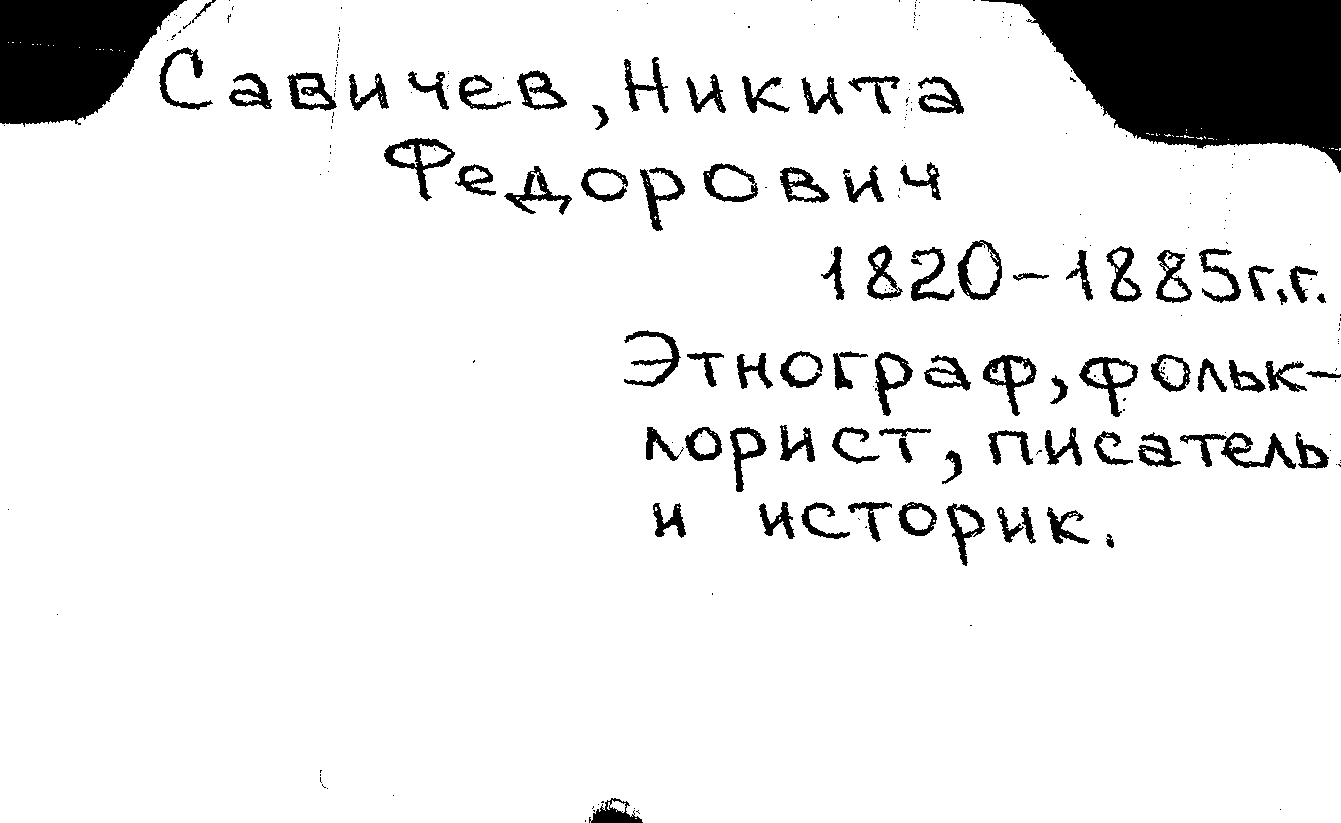 Савичев, Никита
Федорович
1820-1885г.г.
Этнограф, фольк-
лорист, писатель
и историк.